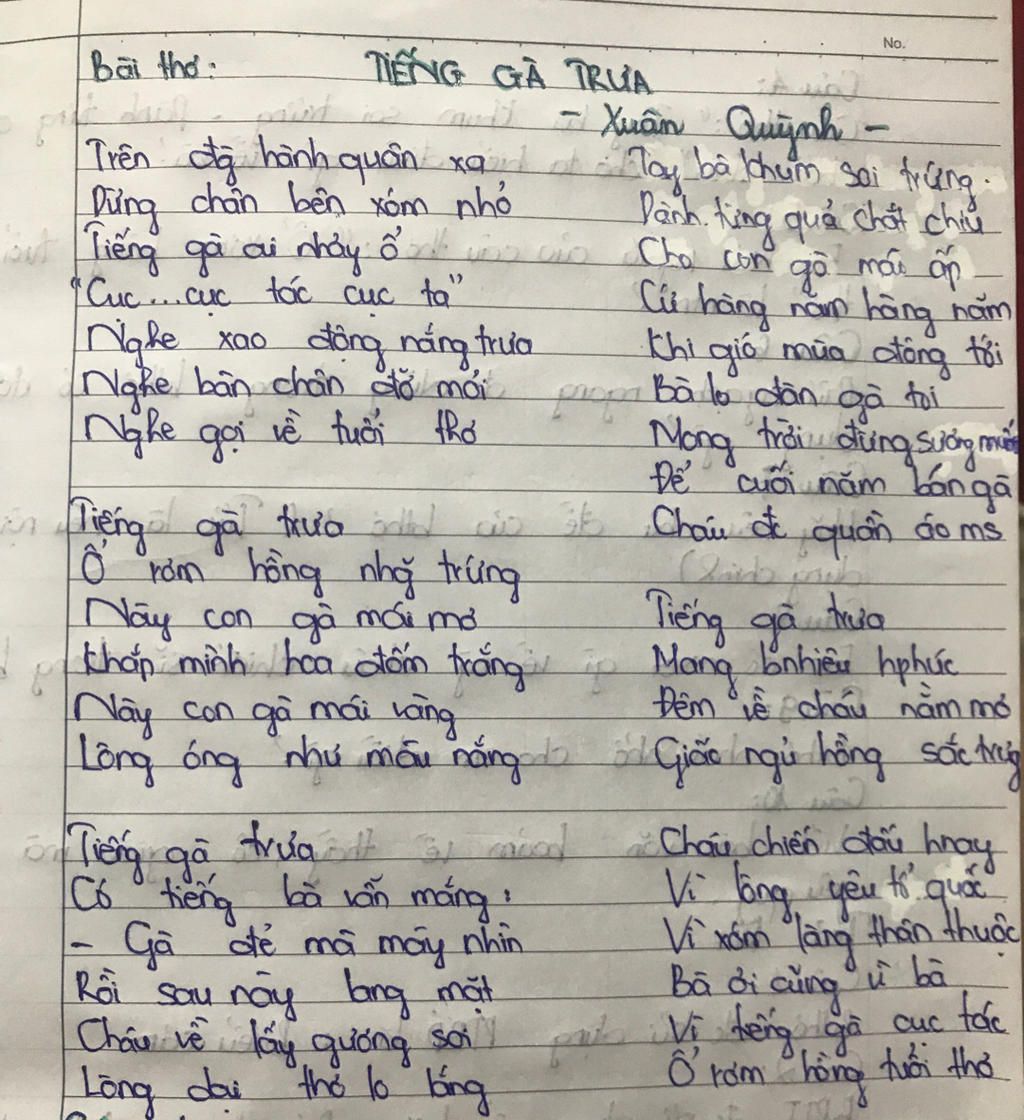 No.
Bài thơ: TIẾNG GÀ TRƯA
- Xuân Quỳnh -
Trên đg hành quân xa
Dừng chân bên xóm nhỏ
Tiếng gà ai nhảy ổ
"Cục...cục tác cục ta"
Nghe xao động nắng trưa
Nghe bàn chân đỡ mỏi
Nghe gọi về tuổi thơ
Tiếng gà trưa
Ổ rơm hồng nhg trứng
Này con gà mái mơ
Khắp mình hoa đốm trắng
Này con gà mái vàng
Lông óng như màu nắng
Tiếng gà trưa
Có tiếng bà vẫn mắng:
- Gà đẻ mà mày nhìn
Rồi sau này lang mặt
Cháu về lấy gương soi
Lòng dại thơ lo lắng
Tay bà khum soi trứng.
Dành từng quả chắt chiu
Cho con gà mái ấp
Cứ hàng năm hàng năm
Khi gió mùa đông tới
Bà lo đàn gà toi
Mong trời đừng sương muối
Để cuối năm bán gà
Cháu đc quần áo ms
Tiếng gà trưa
Mang bnhiêu hphúc
Đêm về cháu nằm mơ
Giấc ngủ hồng sắc trứng
Cháu chiến đấu hnay
Vì lòng yêu tổ quốc
Vì xóm làng thân thuộc
Bà ơi cũng vì bà
Vì tiếng gà cục tác
Ổ rơm hồng tuổi thơ